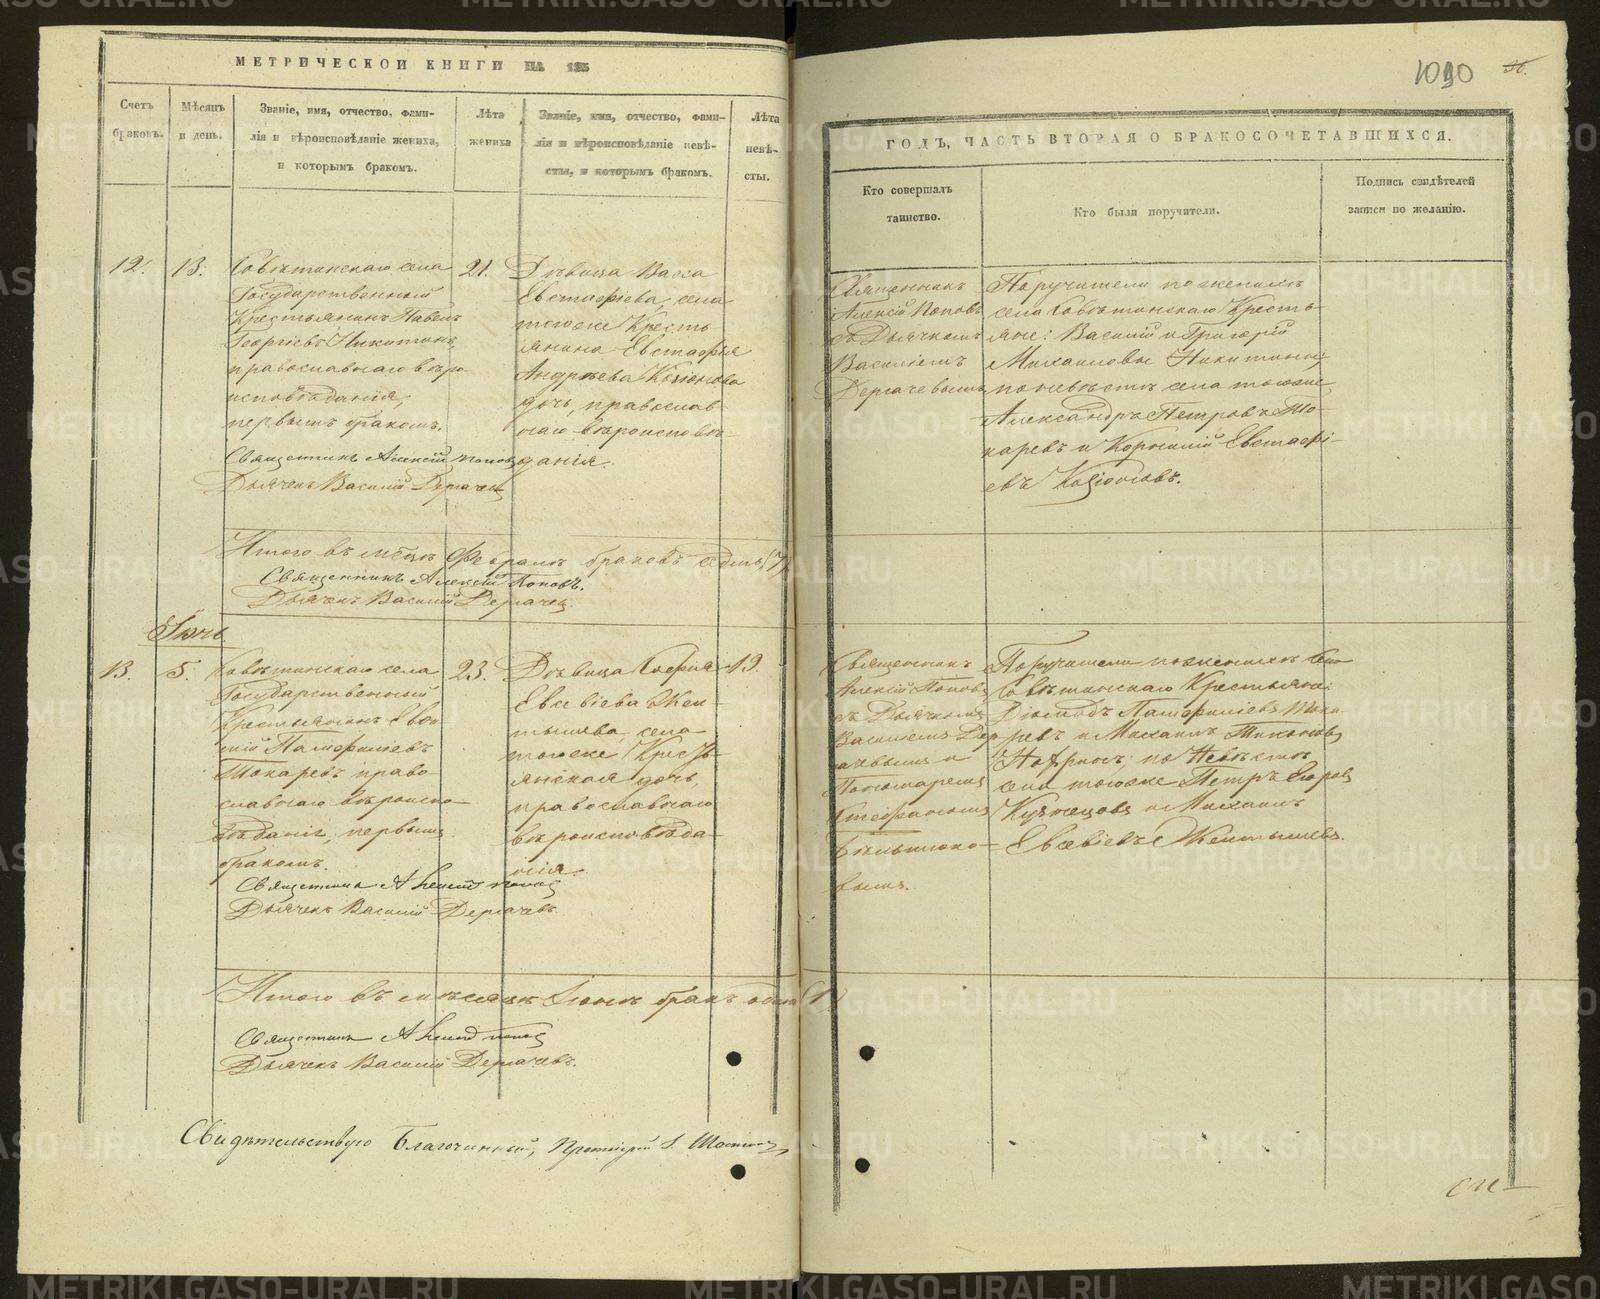 МЕТРИЧЕСКОИ КНИГИ НА 185
Счетъ браковъ.
Мѣсяцъ и день.
Званіе, имя, отчество, фами-
лія и вѣроисповѣданіе жениха,
и которымъ бракомъ.
Лѣта жениха
Званіе, имя, отчество, фами-
лія и вѣроисповѣданіе невѣ-
сты, и которымъ бракомъ.
Лѣта невѣ-
сты.
12.
13.
Совѣтинскаго села
Государственный
Крестьянинъ Павелъ
Георгіевъ Никитинъ,
православнаго вѣро
исповѣданія,
первымъ бракомъ.
Священникъ Алексій Поповъ
Дьячекъ Василій Дергачев
21.
Дѣвица Васса
Евстафіева, села
тогоже Кресть
янина Евстафія
Андрѣева
дочь, православ
наго вѣроисповѣ-
данія.
Итого въ мѣсяцѣ Февралѣ браковъ седмь (7)
Священникъ Алексій Поповъ.
Дьячекъ Василій Дергачев.
Іюнь.
13.
5.
Совѣтинскаго села
Государственный
Крестьянинъ
Памфиліевъ
Токаревъ право
славнаго вѣроиспо-
вѣданія, первымъ
бракомъ.
Священникъ Алексій Поповъ
Дьячекъ Василій Дергачевъ.
23.
Дѣвица Софія
Евсевіева Жен
тышева, села
тогоже Кресть
янская дочь,
православнаго
вѣроисповѣда-
нія.
19.
Итого въ мѣсяцѣ Іюнѣ бракъ одинъ (1)
Священникъ Алексій Поповъ
Дьячекъ Василій Дергачевъ.
Свидѣтельствую Благочинный, Протоіерей І.
1090
36.
ГОДЪ, ЧАСТЬ ВТОРАЯ О БРАКОСОЧЕТАВШИХСЯ.
Кто совершалъ
таинство.
Кто были поручители.
Подпись свидѣтелей
записи по желанію.
Священникъ
Алексій Поповъ
съ Дьячкомъ
Василіемъ
Дергачевымъ
Поручители по женихѣ
села Совѣтинскаго Кресть-
яне: Василій и Григорій
Михаиловы Никитины;
по невѣстѣ села тогоже
Александръ Петровъ То-
каревъ и Корнилій Евстафі-
евъ
Священникъ
Алексій Поповъ
съ Дьячкомъ
Василіемъ Дер-
гачевымъ и
Пономаремъ
Стефаномъ
Поручители по женихѣ Села
Совѣтинскаго Крестьяне:
Діомидъ Памфиліевъ Тока-
ревъ и Михаилъ Тихоновъ
по Невѣстѣ
села тогоже Петръ Егоровъ
Кузнецовъ и Михаилъ
Евсевіевъ Жентышевъ.
METRIKI.GASO-URAL.RU